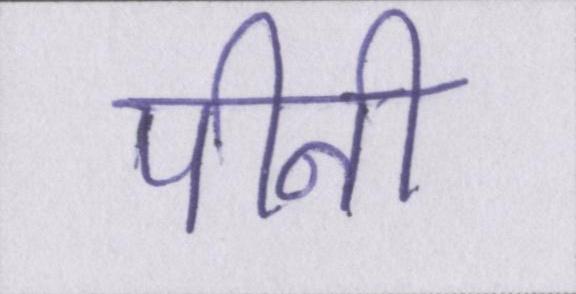 पीनी